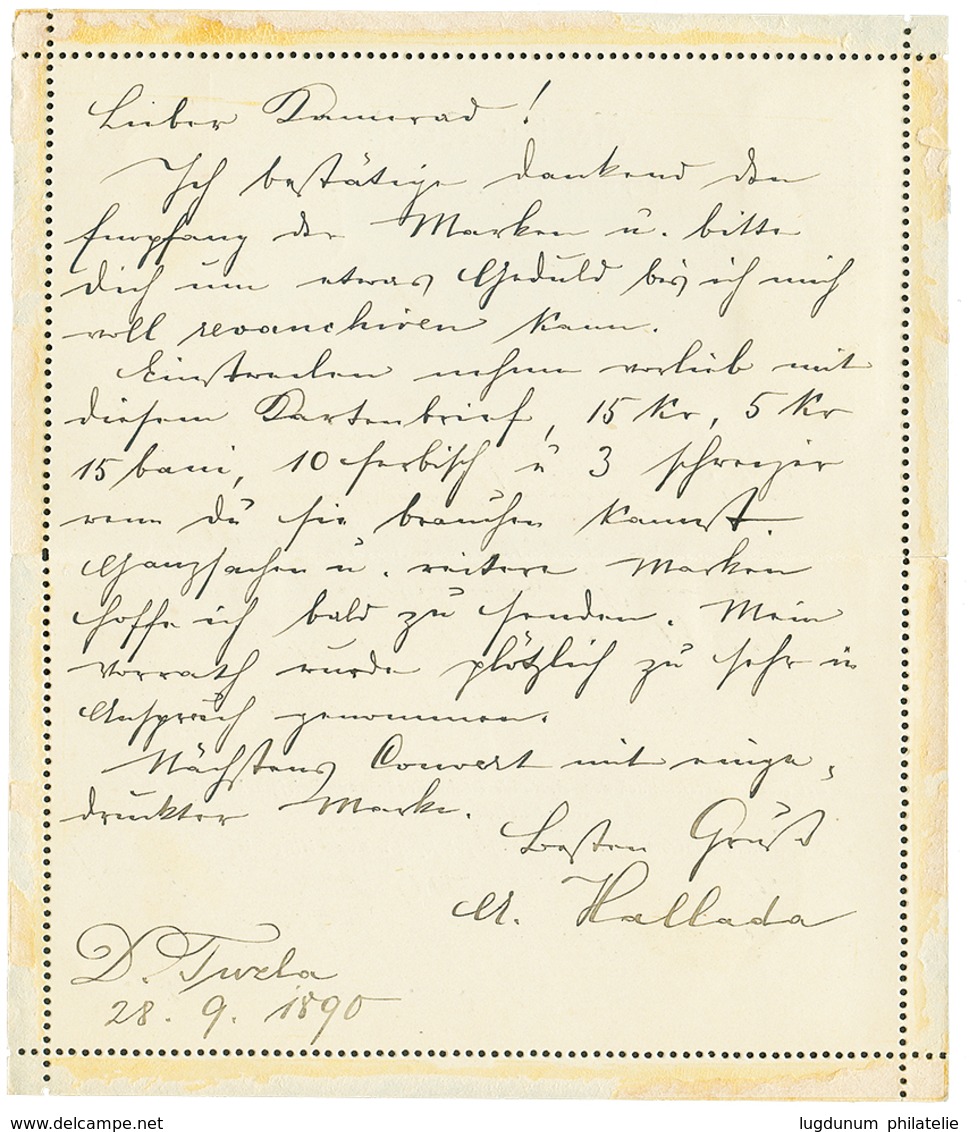 Lieber Kamerad!
Ich bestätige dankend den
Empfang der Marken u. bitte
dich um etwas Geduld bis ich mich
voll revanchiren kann.
Einstweilen nehme vorlieb mit
diesem Kartenbrief, 15 Kr, 5 Kr
15 bani, 10 serbisch u 3 schweizer
wenn du sie brauchen kannst.
Ganzsachen u. weitere Marken
hoffe ich bald zu senden. Mein
Vorrath wurde plötzlich zu sehr in
Anspruch genommen.
Nächstens Couvert mit einge-
druckter Marke.
Besten Gruß
A. Hallada
D. Tuzla
28. 9. 1890
lugdunum philatelie